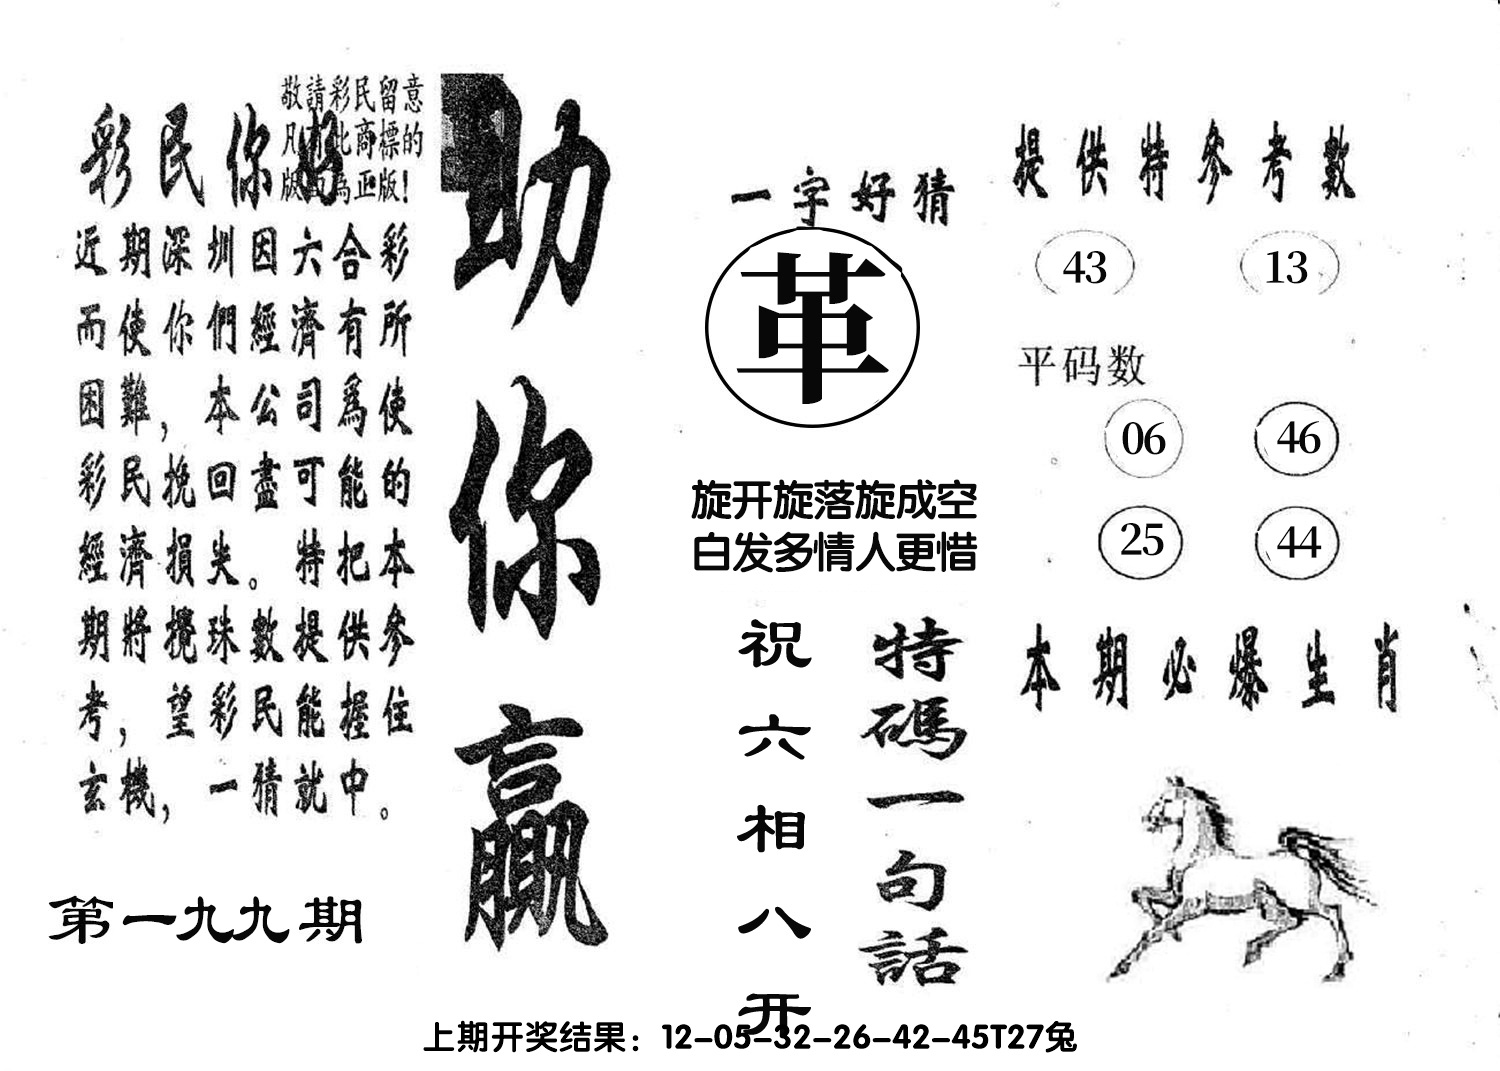 敬請彩民留意
凡有此商標的
版面為正版！
彩民你好
近期深圳因六合彩
而使你們經濟有所
困難，本公司爲使
彩民挽回盡可能的
經濟損失。特把本
期將攪珠數提供參
考，望彩民能握住
玄機，一猜就中。
第一九九期
助你贏
一字好猜
革
旋开旋落旋成空
白发多情人更惜
特碼一句話
祝六相八开
提供特參考數
43 13
平码数
06 46
25 44
本期必爆生肖
上期开奖结果：12-05-32-26-42-45T27兔